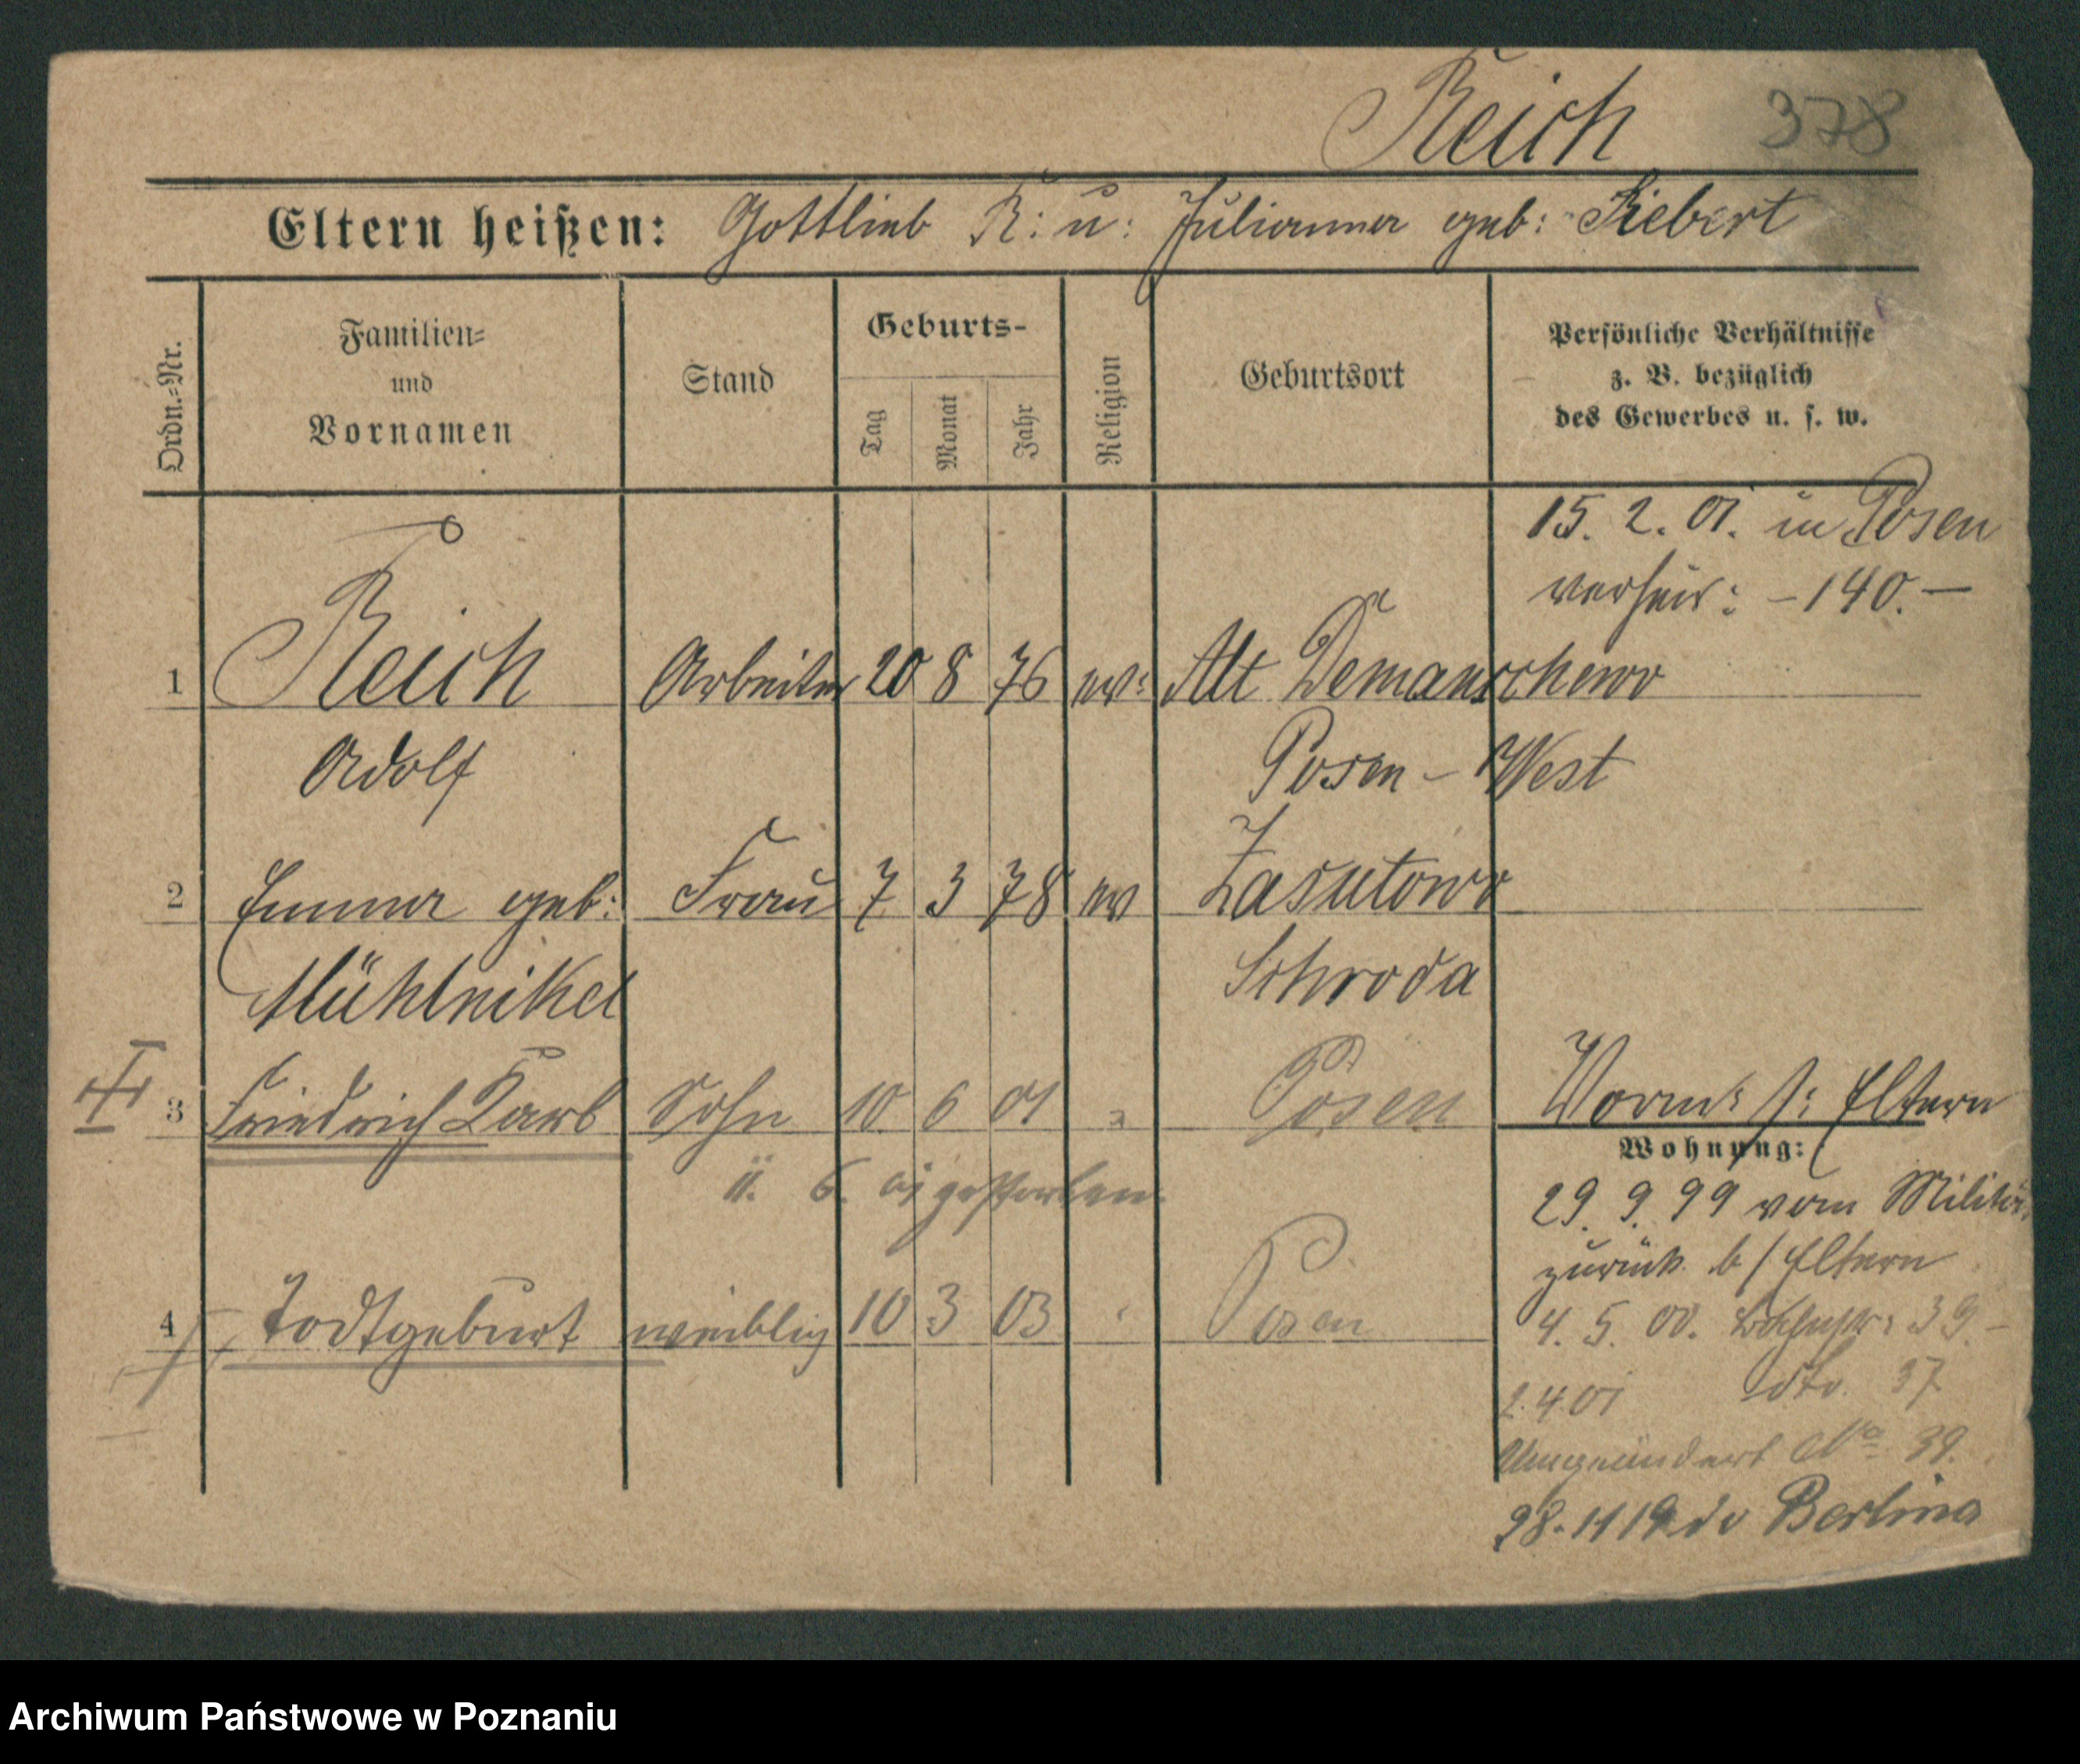 Reich 378
Eltern heißen: Gottlieb R: u: Julianna geb: Siebert
Ordn.-Nr.
Familien-
und
Vornamen
Stand
Geburts-
Tag
Monat
Jahr
Religion
Geburtsort
Persönliche Verhältnisse
z. B. bezüglich
des Gewerbes u. s. w.
15. 2. 01. in Posen
verheir: - 140. -
1 Reich Arbeiter 20 8 76 ev: Alt Demanschewo
Adolf Posen - West
2 Emma geb: Frau 7 3 78 ev Zasutowo
Mühlnikel Schroda
3 Friedrich Karl Sohn 10 6 01 Posen Vorm: s: Eltern
11. 6. 01 gestorben.
Wohnung:
29. 9. 99 vom Militär
zurück b/ Eltern
4 Todtgeburt weiblich 10 3 03 Posen
4. 5. 00. 39 -
2. 4 01 dto. 37
Umgeändert No 39.
28. 11 19 Berlina
Archiwum Państwowe w Poznaniu